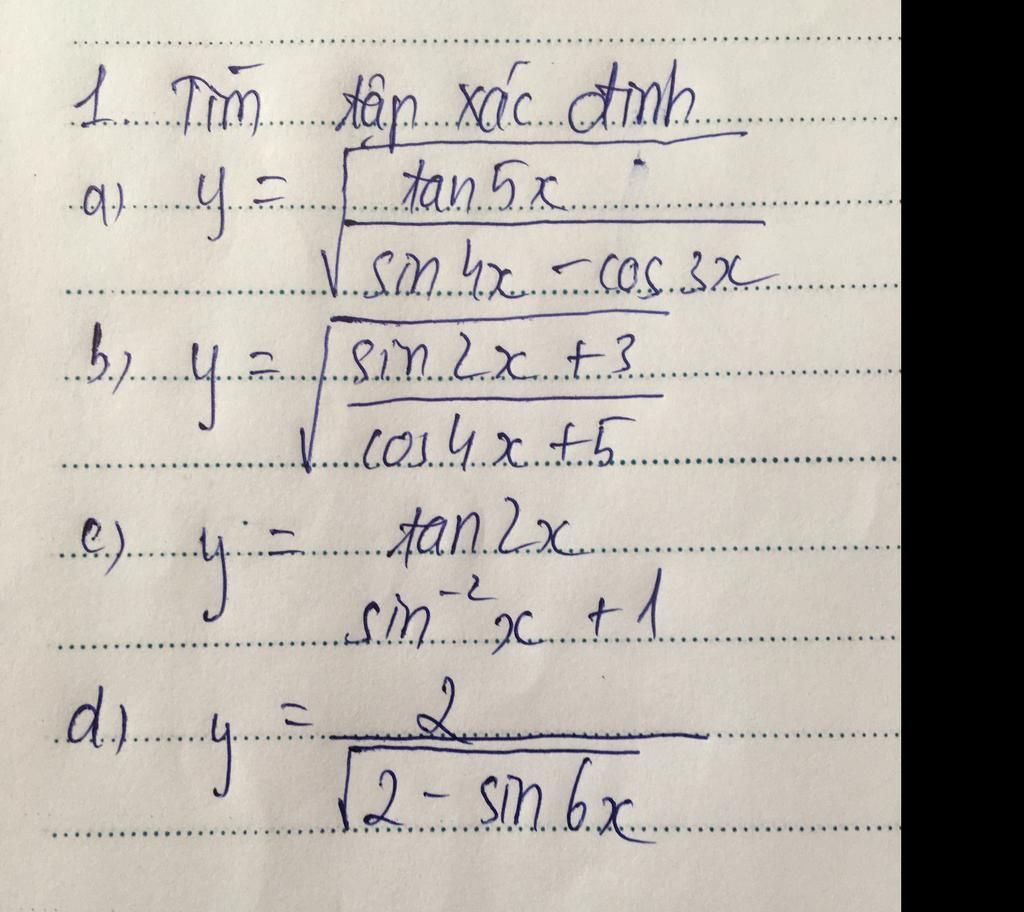 1. Tìm tập xác định
a) y = √(tan 5x / (sin 4x - cos 3x))
b) y = √((sin 2x + 3) / (cos 4x + 5))
c) y = tan 2x
sin⁻² x + 1
d) y = 2 / √(2 - sin 6x)